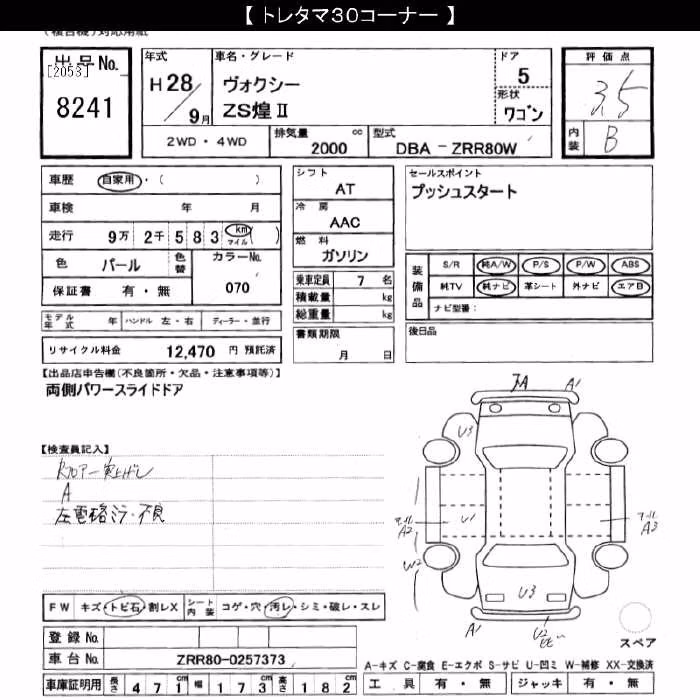 【 トレタマ30コーナー 】
(複合機)対応用紙
出品No.
[2053]
8241
年式
H28/9月
車名・グレード
ヴォクシー
ZS煌Ⅱ
ドア
5
形状
ワゴン
評価点
3.5
内装
B
2WD・4WD
排気量 cc
2000
型式
DBA-ZRR80W
車歴 自家用・( )
車検 年 月
走行 9万 2千 5 8 3 km マイル ( )
色 パール 色替
カラーNo.
070
保証書 有・無
モデル年式 年 ハンドル 左・右 ディーラー・並行
リサイクル料金 12,470 円 預託済
シフト
AT
冷房
AAC
燃料
ガソリン
乗車定員 7 名
積載量 kg
総重量 kg
書類期限
月 日
セールスポイント
プッシュスタート
装備品
S/R 純A/W P/S P/W ABS
純TV 純ナビ 革シート 外ナビ エアB
ナビ型番:
後日品
【出品店申告欄(不良箇所・欠品・注意事項等)】
両側パワースライドドア
【検査員記入】
A
左電格ミラー不良
A A1
U3
U1
A2
A3
W2
U3
A1
U2
スペア
FW キズ・トビ石・割レX シート内装 コゲ・穴・汚レ・シミ・破レ・スレ
登録No.
車台No. ZRR80-0257373
車庫証明用 長さ 4 7 1cm 幅 1 7 3cm 高さ 1 8 2cm
A-キズ C-腐食 E-エクボ S-サビ U-凹ミ W-補修 XX-交換済
工具 有・無 ジャッキ 有・無